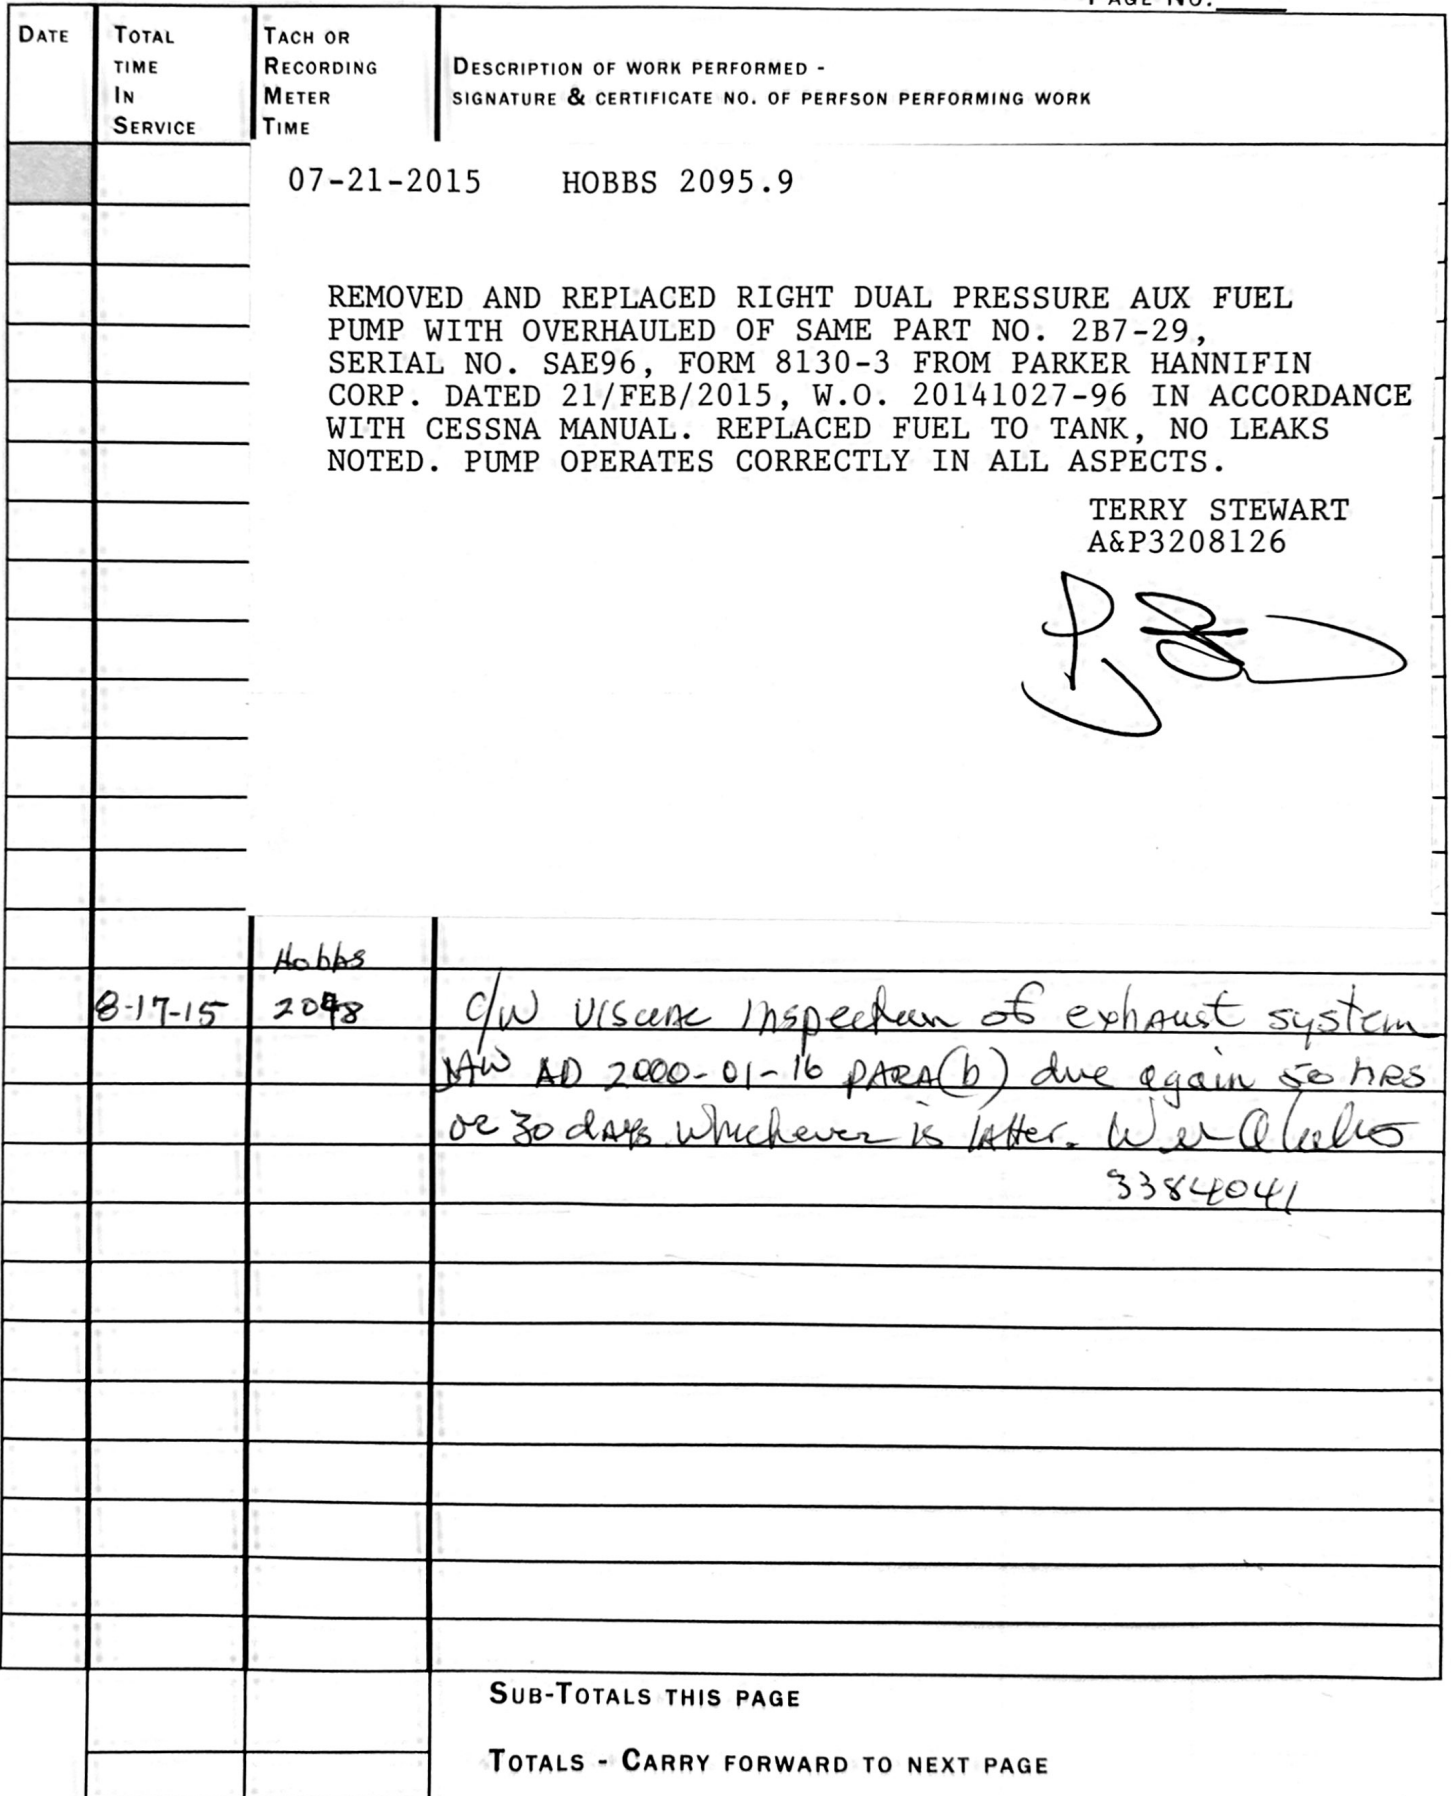 PAGE NO.
DATE
TOTAL TIME IN SERVICE
TACH OR RECORDING METER TIME
DESCRIPTION OF WORK PERFORMED -
SIGNATURE & CERTIFICATE NO. OF PERFSON PERFORMING WORK
07-21-2015 HOBBS 2095.9
REMOVED AND REPLACED RIGHT DUAL PRESSURE AUX FUEL
PUMP WITH OVERHAULED OF SAME PART NO. 2B7-29,
SERIAL NO. SAE96, FORM 8130-3 FROM PARKER HANNIFIN
CORP. DATED 21/FEB/2015, W.O. 20141027-96 IN ACCORDANCE
WITH CESSNA MANUAL. REPLACED FUEL TO TANK, NO LEAKS
NOTED. PUMP OPERATES CORRECTLY IN ALL ASPECTS.
TERRY STEWART
A&P3208126
Hobbs
8-17-15 2098 C/W VISUAL Inspection of exhaust system
IAW AD 2000-01-16 PARA(b) due again 50 hrs
or 30 days whichever is latter.
3384041
SUB-TOTALS THIS PAGE
TOTALS - CARRY FORWARD TO NEXT PAGE